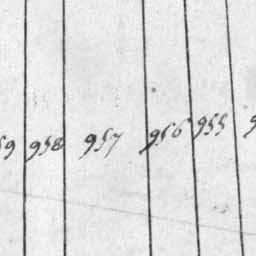 958 957 956 955